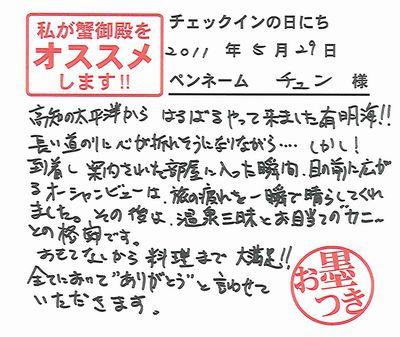 私が蟹御殿を
オススメ
します!!
チェックインの日にち
2011 年 5月 29日
ペンネーム チュン 様
高知の太平洋から はるばるやって来ました有明海!!
長い道のりに心が折れそうになりながら…. しかし!
到着し 案内された部屋に入った瞬間、目の前に広が
るオーシャンビューは、旅の疲れを一瞬で晴らしてくれ
ました。その後は、温泉三昧とお目当ての"カニ〜
との格闘です。
おもてなしから 料理まで 大満足!!
全てにおいて"ありがとう"と言わせて
いただきます。
お墨
つき